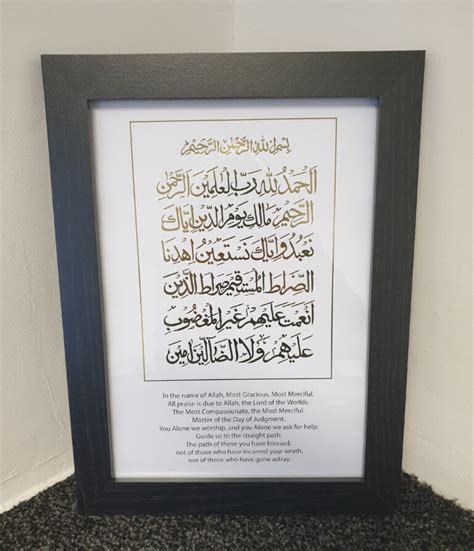 بسم الله الرحمن الرحيم
الحمد لله رب العلمين الرحمن
الرحيم مالك يوم الدين إياك
نعبد وإياك نستعين اهدنا
الصراط المستقيم صراط الذين
أنعمت عليهم غير المغضوب
عليهم ولا الضالين آمين
In the name of Allah, Most Gracious, Most Merciful.
All praise is due to Allah, the Lord of the Worlds.
The Most Compassionate, the Most Merciful.
Master of the Day of Judgment.
You Alone we worship, and you Alone we ask for help.
Guide us to the straight path.
The path of those you have blessed;
not of those who have incurred your wrath,
nor of those who have gone astray.